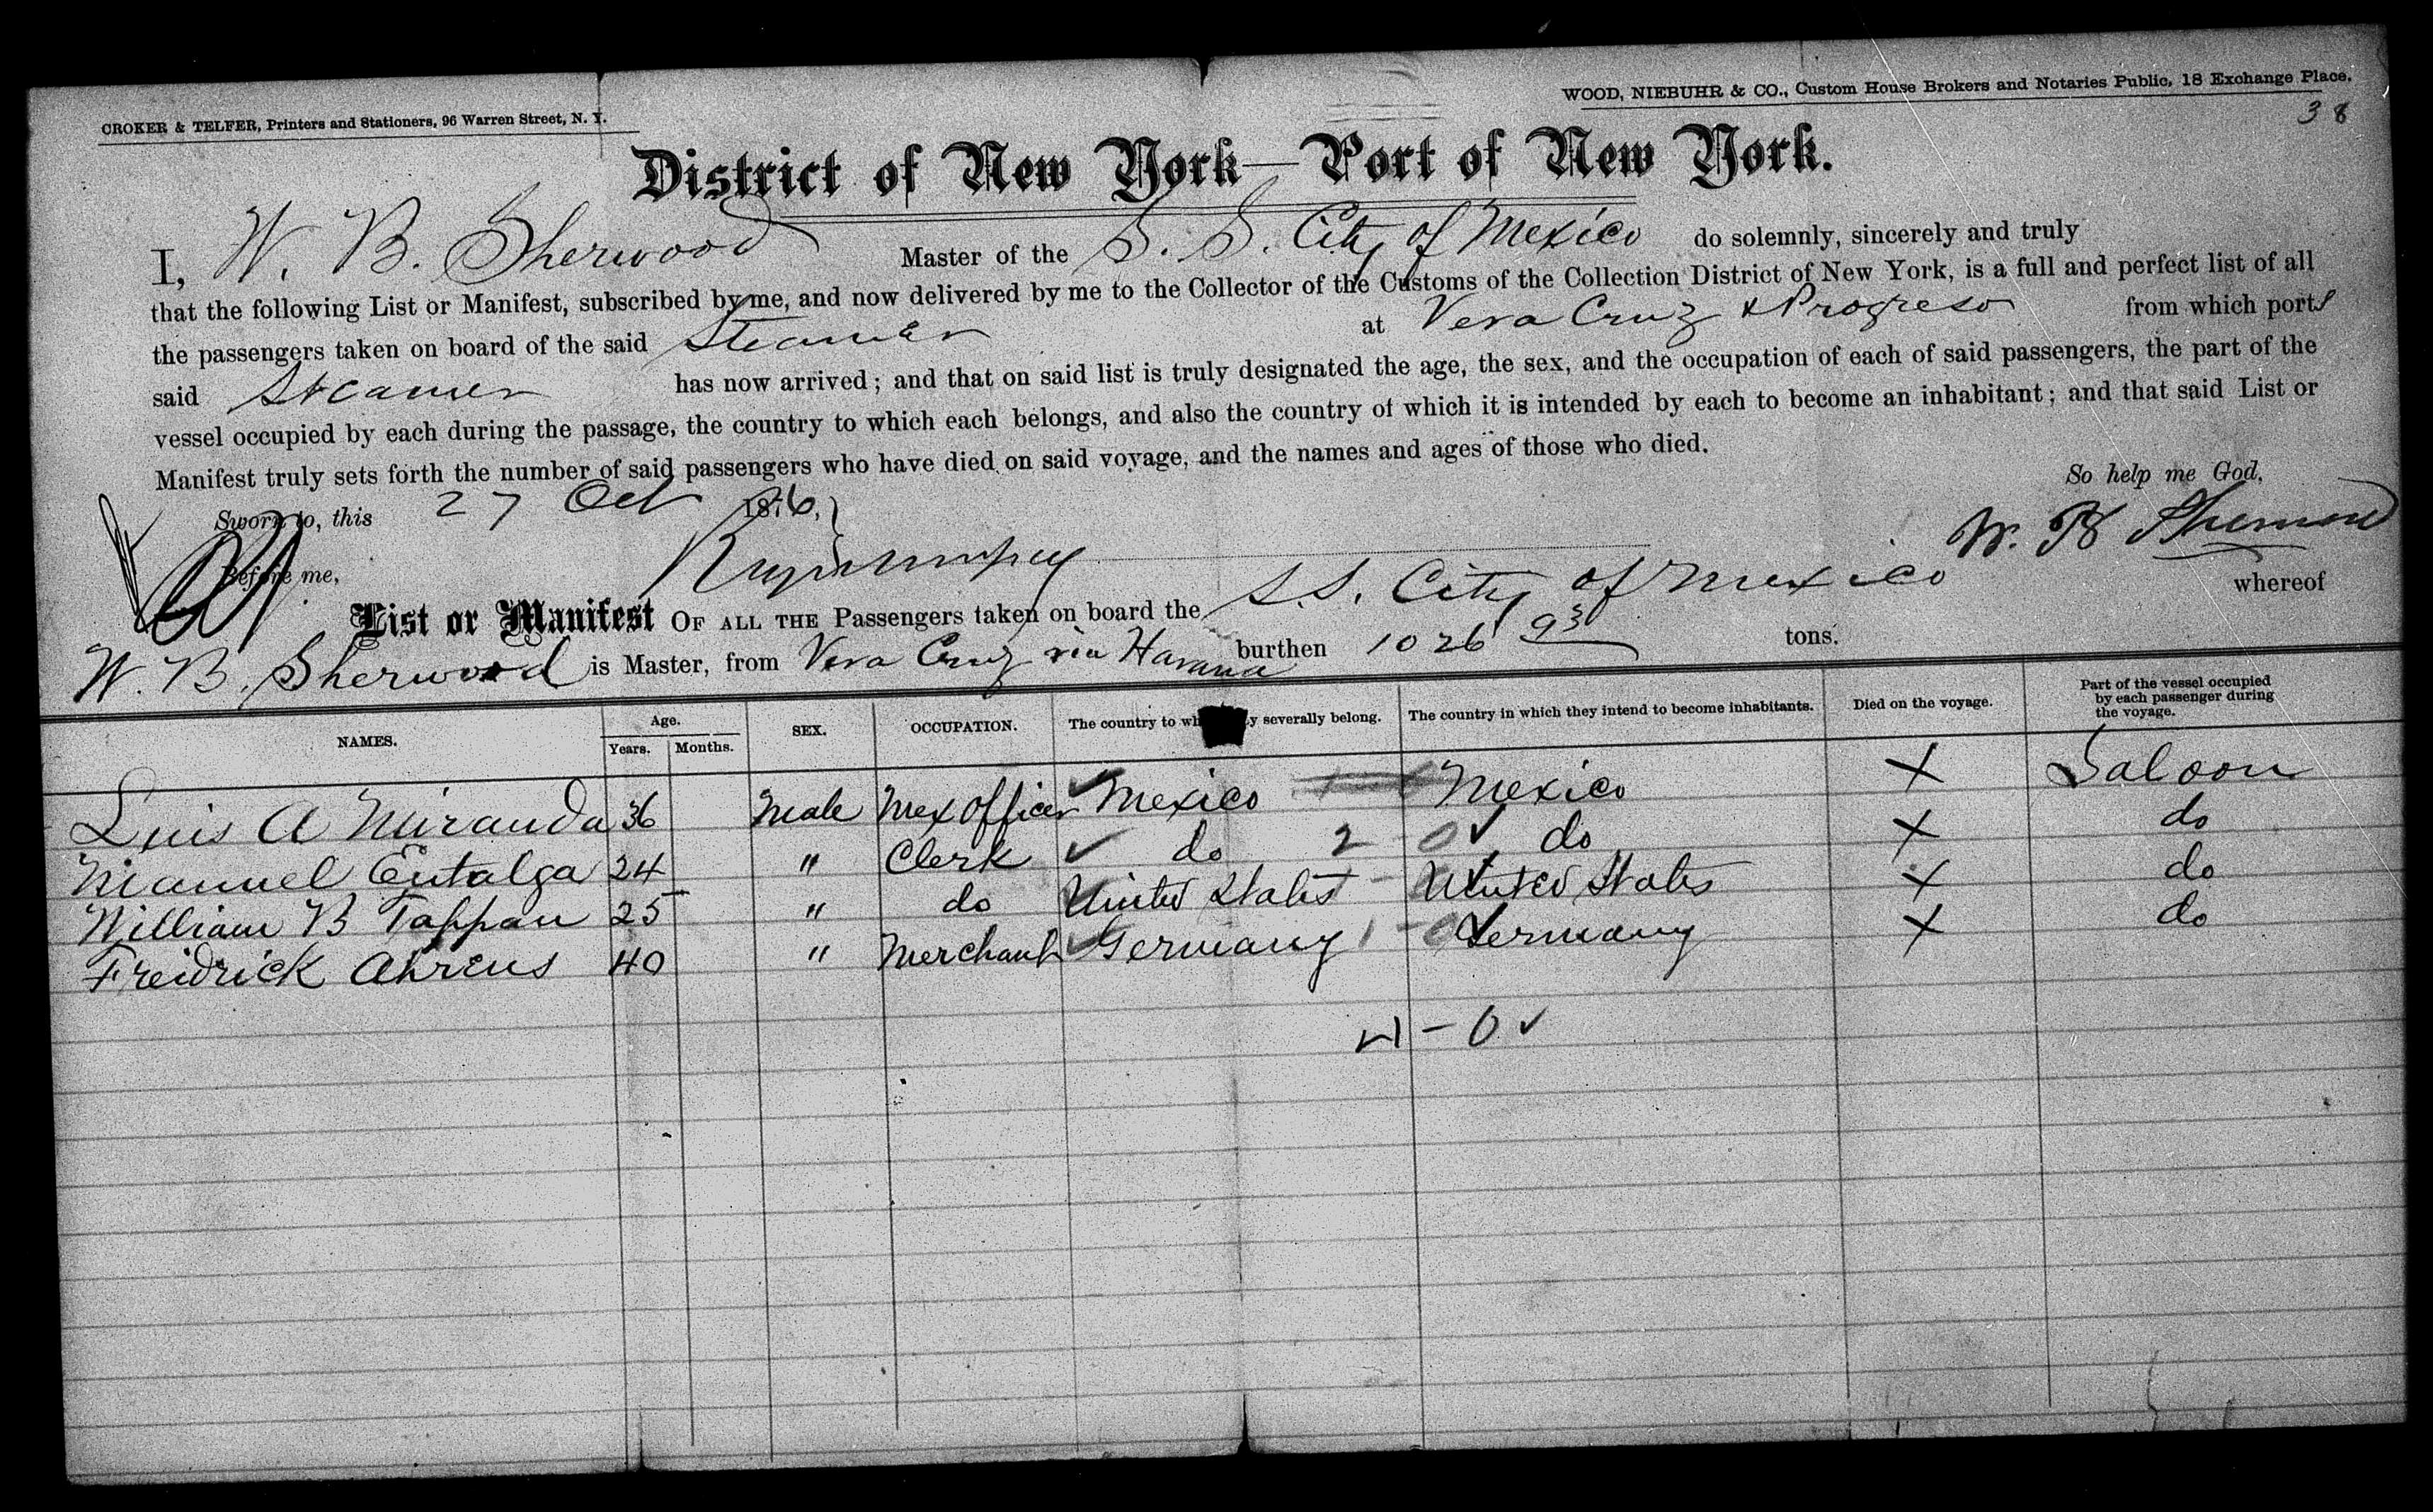 CROKER & TELFER, Printers and Stationers, 96 Warren Street, N. Y.
WOOD, NIEBUHR & CO., Custom House Brokers and Notaries Public, 18 Exchange Place.
38
District of New York—Port of New York.
I, W. B. Sherwood Master of the S. S. City of Mexico do solemnly, sincerely and truly
that the following List or Manifest, subscribed by me, and now delivered by me to the Collector of the Customs of the Collection District of New York, is a full and perfect list of all
the passengers taken on board of the said Steamer at Vera Cruz & Progreso from which ports
said Steamer has now arrived; and that on said list is truly designated the age, the sex, and the occupation of each of said passengers, the part of the
vessel occupied by each during the passage, the country to which each belongs, and also the country of which it is intended by each to become an inhabitant; and that said List or
Manifest truly sets forth the number of said passengers who have died on said voyage, and the names and ages of those who died.
So help me God,
Sworn to, this 27 Oct
W. B Sherwood
Before me,
List or Manifest OF ALL THE Passengers taken on board the S.S. City of Mexico whereof
W. B. Sherwood is Master, from Vera Cruz via Havana burthen 1026 93 tons.
NAMES. Age. Years. Months. SEX. OCCUPATION. The country to y severally belong. The country in which they intend to become inhabitants. Died on the voyage. Part of the vessel occupied by each passenger during the voyage.
Luis A Miranda 36 Male Mex Officer Mexico Mexico X Saloon
Manuel 24 " Clerk do 2 0 do X do
William B Tappan 25 " do United States United States X do
Freidrick Ahrens 40 " Merchant Germany 1 - 0 Germany X do
- 0